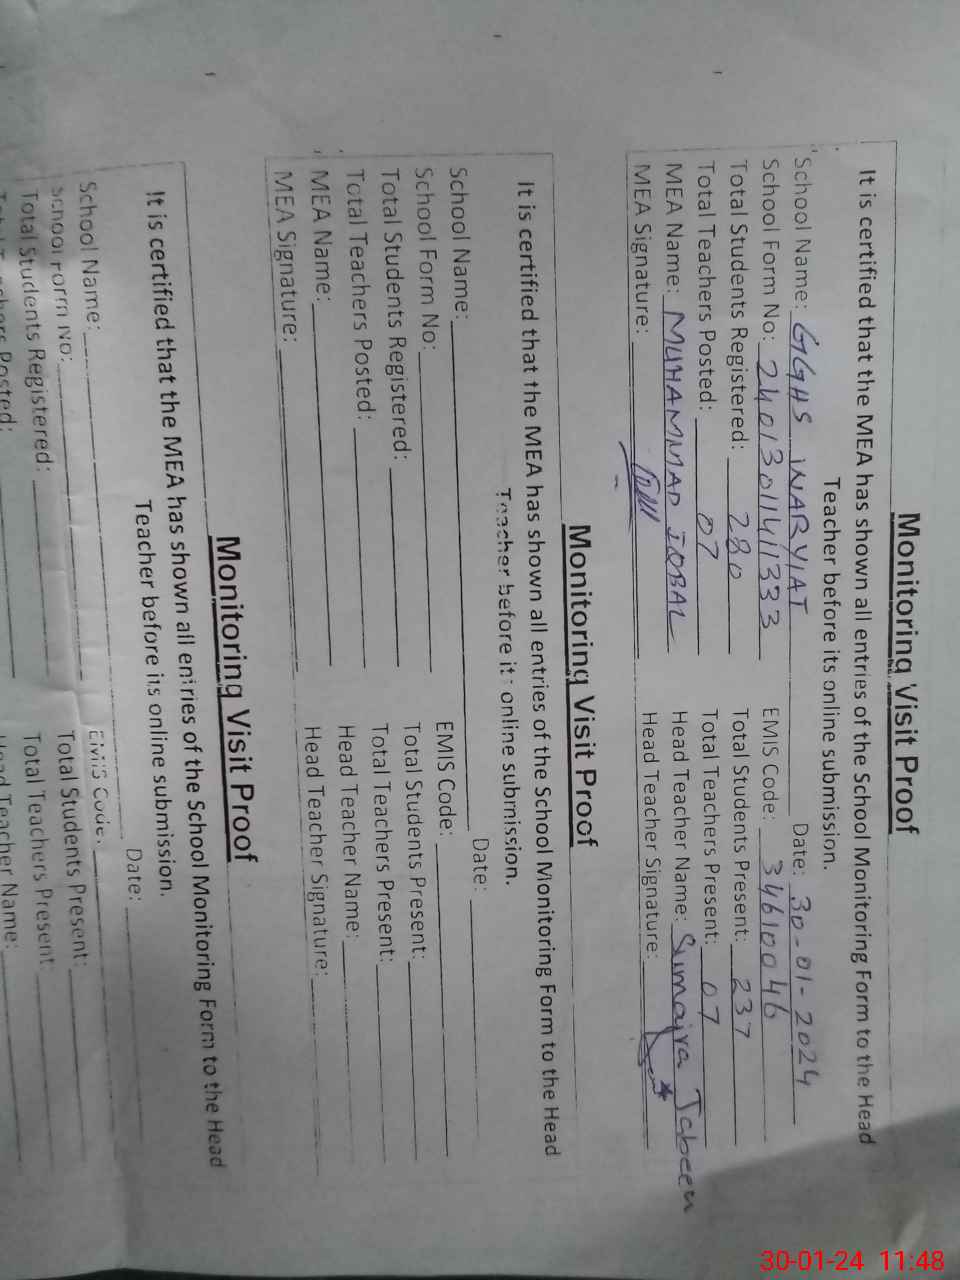 Monitoring Visit Proof
It is certified that the MEA has shown all entries of the School Monitoring Form to the Head
Teacher before its online submission.
School Name: GGHS WARYIAT Date: 30-01-2024
School Form No: 24013011411333 EMIS Code: 34610046
Total Students Registered: 280 Total Students Present: 237
Total Teachers Posted: 07 Total Teachers Present: 07
MEA Name: MUHAMMAD IQBAL Head Teacher Name: Sumaira Jabeen
MEA Signature: Head Teacher Signature:
Monitoring Visit Proof
It is certified that the MEA has shown all entries of the School Monitoring Form to the Head
Teacher before it online submission.
Date:
School Name:
School Form No: EMIS Code:
Total Students Registered: Total Students Present:
Total Teachers Posted: Total Teachers Present:
MEA Name: Head Teacher Name:
MEA Signature: Head Teacher Signature:
Monitoring Visit Proof
It is certified that the MEA has shown all entries of the School Monitoring Form to the Head
Teacher before its online submission.
Date:
School Name:
School Form No: EMIS Code:
Total Students Registered: Total Students Present:
Total Teachers Posted: Total Teachers Present
Head Teacher Name:
30-01-24 11:48